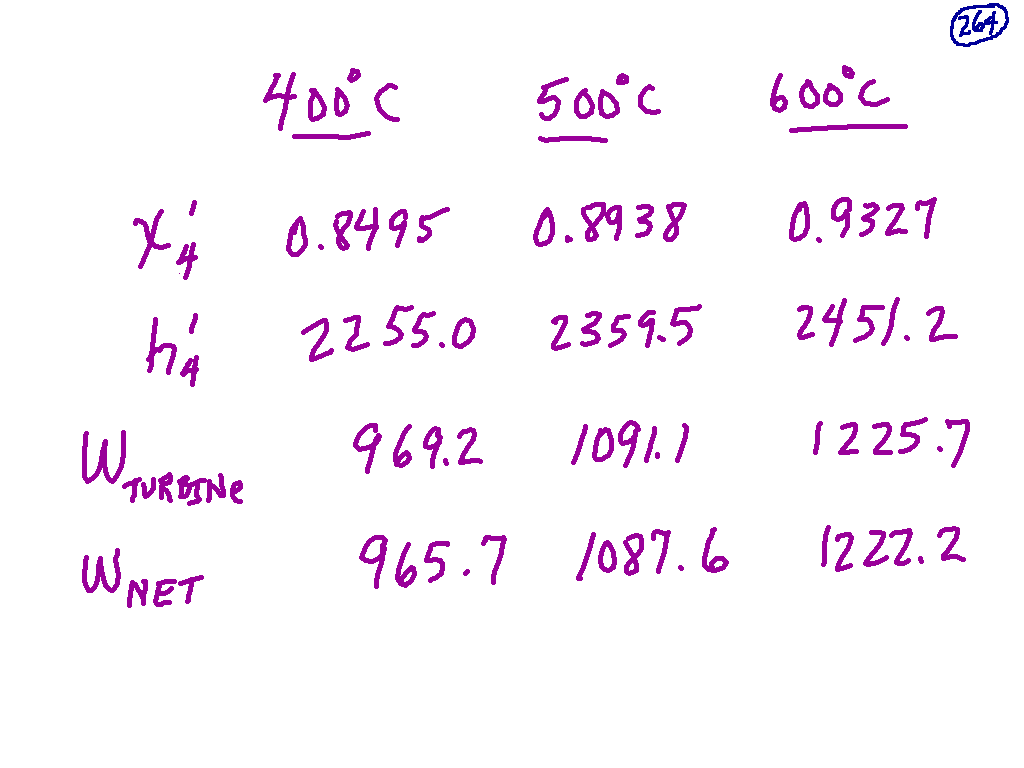 264
400°C 500°C 600°C
x₄' 0.8495 0.8938 0.9327
h₄' 2255.0 2359.5 2451.2
W TURBINe 969.2 1091.1 1225.7
W NET 965.7 1087.6 1222.2